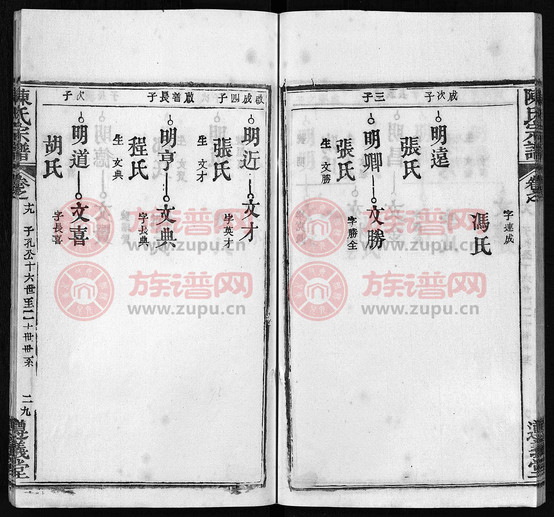 陳氏宗譜
卷之
遵義堂
字達成
馮氏
成次子
明遠
張氏
三子
明卿
文勝
字勝全
張氏
生 文勝
啟成四子
明近
文才
字英才
張氏
生 文才
啟着長子
明亨
文典
字長典
程氏
生 文典
次子
明道
文喜
字長喜
胡氏
陳氏宗譜
卷之
十九
子孔公十六世至二十世世系
二九
遵義堂
族谱网
www.zupu.cn
族谱网
www.zupu.cn
族谱网
www.zupu.cn
族谱网
www.zupu.cn